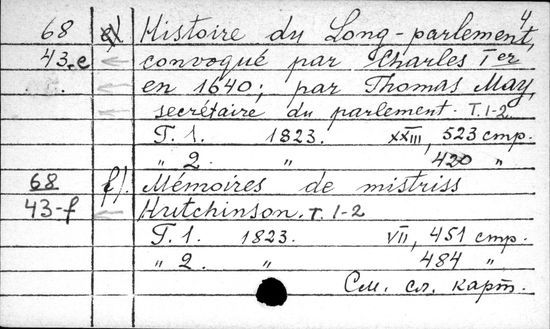 4
68 e) Histoire du Long-parlement,
43-e convoqué par Charles Ier
en 1640; par Thomas May,
secrétaire du parlement. T. 1-2
T. 1. 1823. XXIII, 523 стр.
" 2. " 420 "
68 f). Mémoires de mistriss
43-f Hutchinson. T. 1-2
T. 1. 1823. VII, 451 стр.
" 2. " 484 "
См. сл. карт.